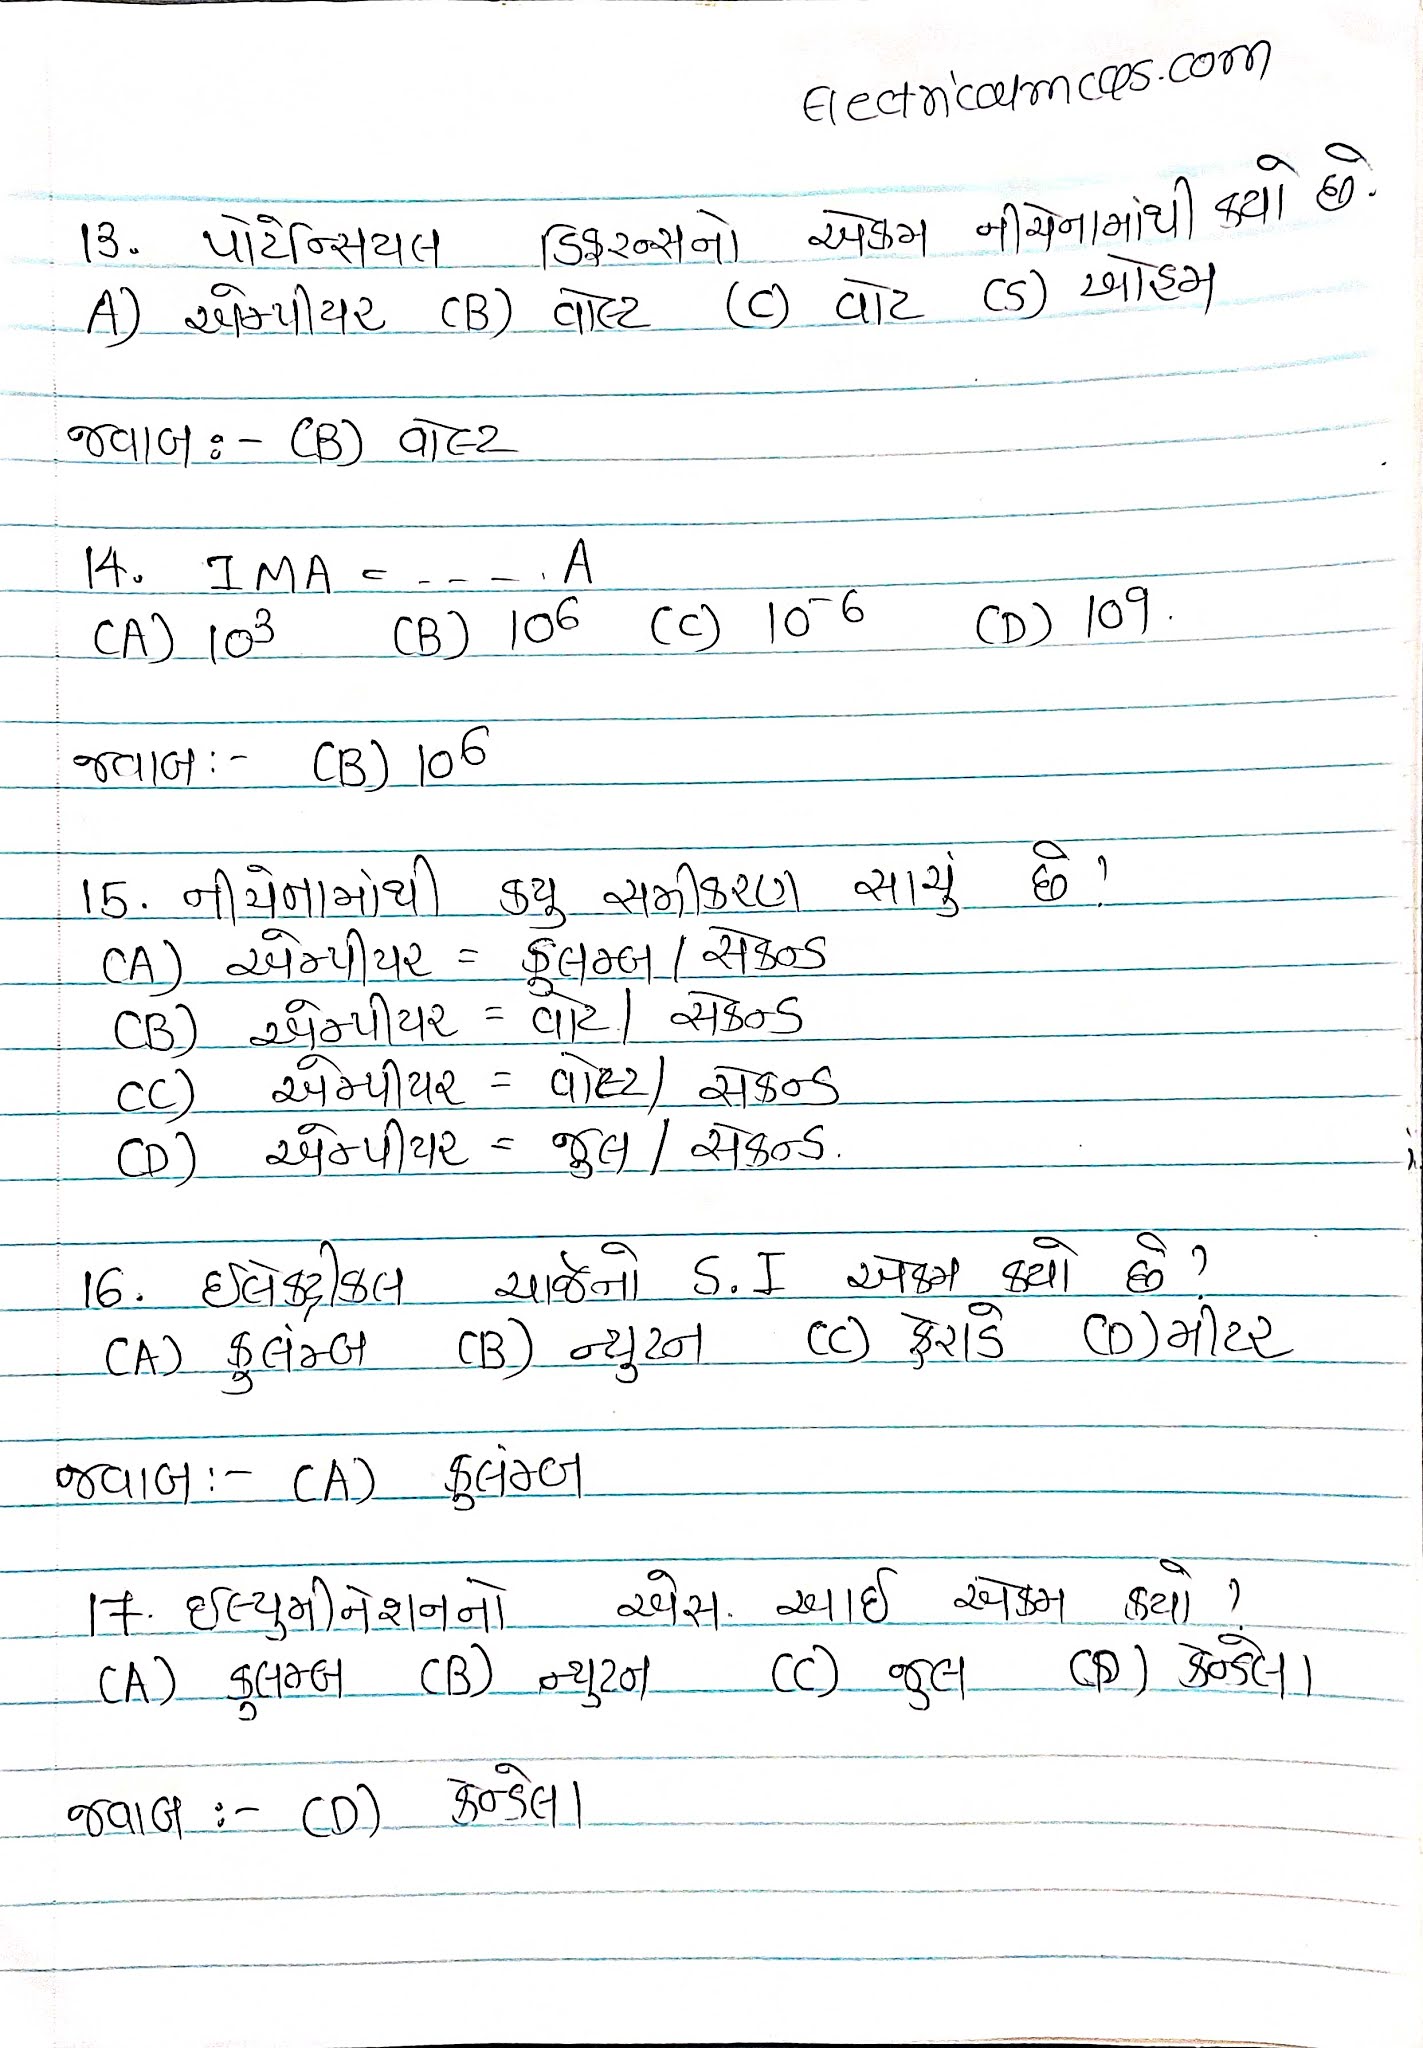 Electricalmcqs.com
13. પોટેન્સિયલ ડિફરન્સનો એકમ નીચેનામાંથી કયો છે.
A) એમ્પીયર (B) વોલ્ટ (C) વોટ (S) ઓહમ
જવાબ :- (B) વોલ્ટ
14. IMA = ----. A
(A) 10³ (B) 10⁶ (C) 10⁻⁶ (D) 10⁹.
જવાબ :- (B) 10⁶
15. નીચેનામાંથી કયુ સમીકરણ સાચું છે?
(A) એમ્પીયર = કુલમ્બ / સેકન્ડ
(B) એમ્પીયર = વોટ / સેકન્ડ
(C) એમ્પીયર = વોલ્ટ / સેકન્ડ
(D) એમ્પીયર = જુલ / સેકન્ડ.
16. ઈલેક્ટ્રીકલ ચાર્જનો S.I એકમ કયો છે?
(A) કુલંમ્બ (B) ન્યુટન (C) ફેરાડે (D) મીટર
જવાબ :- (A) કુલંમ્બ
17. ઈલ્યુમીનેશનનો એસ. આઈ એકમ કયો?
(A) કુલમ્બ (B) ન્યુટન (C) જુલ (D) કેન્ડેલા
જવાબ :- (D) કેન્ડેલા